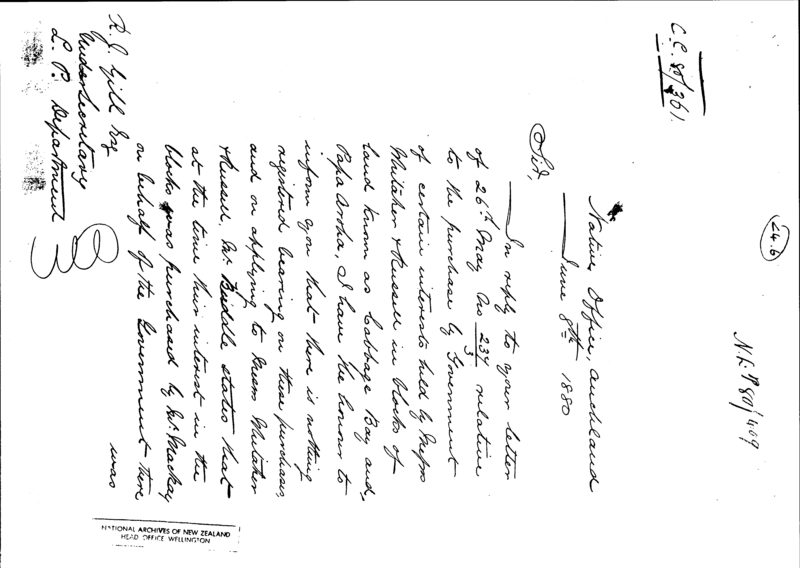 24.6
N.L.P 80/409
C.C. 80/361
Native Office, Auckland
June 8th 1880
Sir,
In reply to your letter
of 26th May No 234/3 relative
to the purchase by Government
of certain interests held by Messrs
Whitaker & Russell in blocks of
land known as Cabbage Bay and,
Papa Aroha, I have the honour to
inform you that there is nothing
registered bearing on these purchases,
and on applying to Messrs Whitaker
& Russell, Mr. Biddle states that
at the time their interest in the
blocks was purchased by Mr. Mackay
on behalf of the Government there
was
R. J. Gill Esq
Undersecretary
L. P. Department
NATIONAL ARCHIVES OF NEW ZEALAND
HEAD OFFICE WELLINGTON